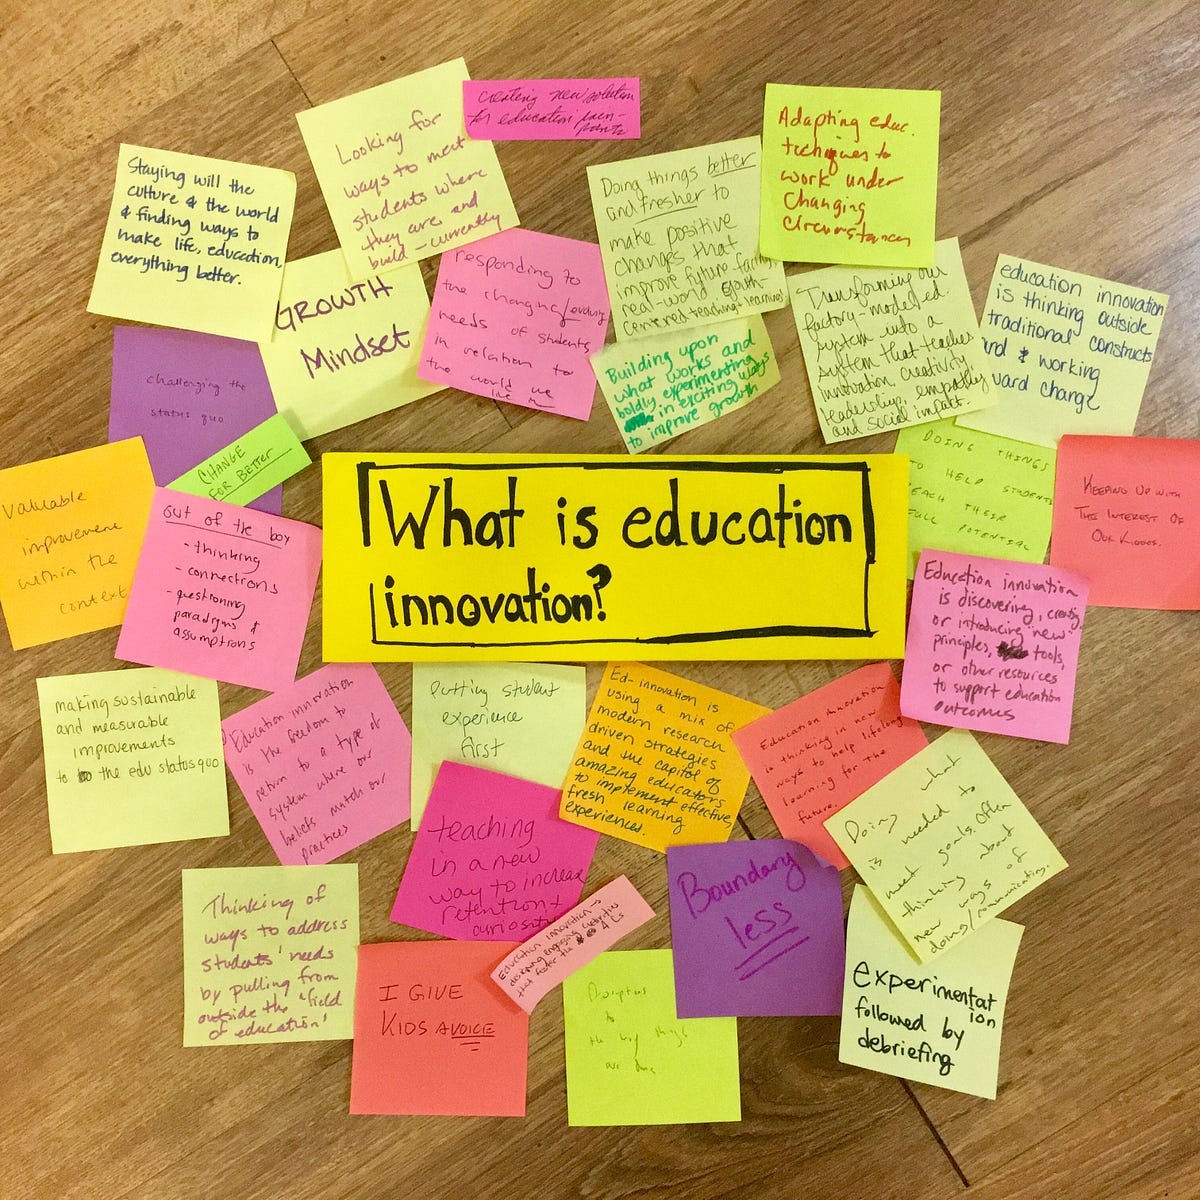 creating new solution
for education pain-
points
Looking for
ways to meet
students where
they are and
build - currently
Staying will the
culture & the world
& finding ways to
make life, education,
everything better.
GROWTH
Mindset
responding to
the changing/evolving
needs of students
in relation to
the world we
live in
Doing things better
and fresher to
make positive
changes that
improve future facing,
real-world, youth-
centered teaching + learning
Adapting educ.
techniques to
work under
changing
circumstances
Building upon
what works and
boldly experimenting
in exciting ways
to improve growth
Transforming our
factory-modeled
system into a
system that teaches
innovation, creativity
leadership, empathy
and social impact.
education innovation
is thinking outside
traditional constructs
and & working
ward change
challenging the
status quo
CHANGE
FOR BETTER
Valuable
improvement
within the
context
out of the box
- thinking
- connections
- questioning
paradigms &
assumptions
What is education
innovation?
DOING THINGS
TO HELP STUDENTS
REACH THEIR
FULL POTENTIAL
KEEPING UP WITH
THE INTEREST OF
OUR KIDDOS.
Education innovation
is discovering, creating
or introducing new
principles, tools,
or other resources
to support education
outcomes
making sustainable
and measurable
improvements
to the edu status quo
Education innovation
is the freedom to
return to a type of
system where our
beliefs match our
practices
putting student
experience
first
Ed-innovation is
using a mix of
modern research
driven strategies
and the capitol of
amazing educators
to implement effective,
fresh learning
experiences.
Education innovation
is thinking in new
ways to help lifelong
learning for the
future.
Doing what
is needed to
meet goals. Often
thinking about
new ways of
doing/communicating.
teaching
in a new
way to increase
retention +
curiosity
Boundary
less
Thinking of
ways to address
students' needs
by pulling from
outside the 'field
of education'
I GIVE
KIDS A VOICE
Education innovation →
designing engaging
that foster the 4 Cs
Disruptions
to
the way things
are
experimentat
ion
followed by
debriefing